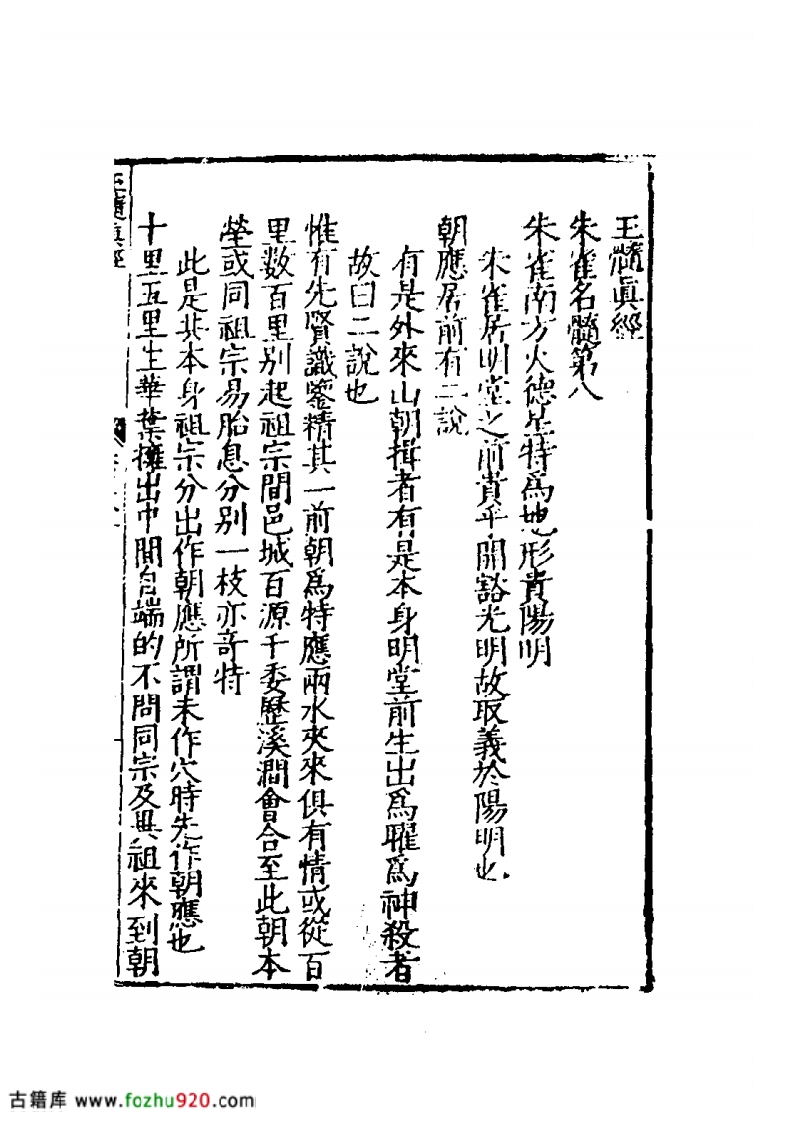 玉髓眞經
朱雀名髓第八
朱雀南方火德星特爲地形貴陽明
朱雀居明堂之前貴平開豁光明故取義於陽明也
朝應居前有二說
有是外來山朝揖者有是本身明堂前生出爲曜爲神殺者
故曰二說也
惟有先賢識鑒精其一前朝爲特應兩水夾來俱有情或從百
里數百里別起祖宗間邑城百源千委歷溪澗會合至此朝本
塋或同祖宗易胎息分別一枝亦奇特
此是其本身祖宗分出作朝應所謂未作穴時先作朝應也
十里五里生華葉擁出中間自端的不問同宗及異祖來到朝
玉髓眞經
古籍库 www.fozhu920.com